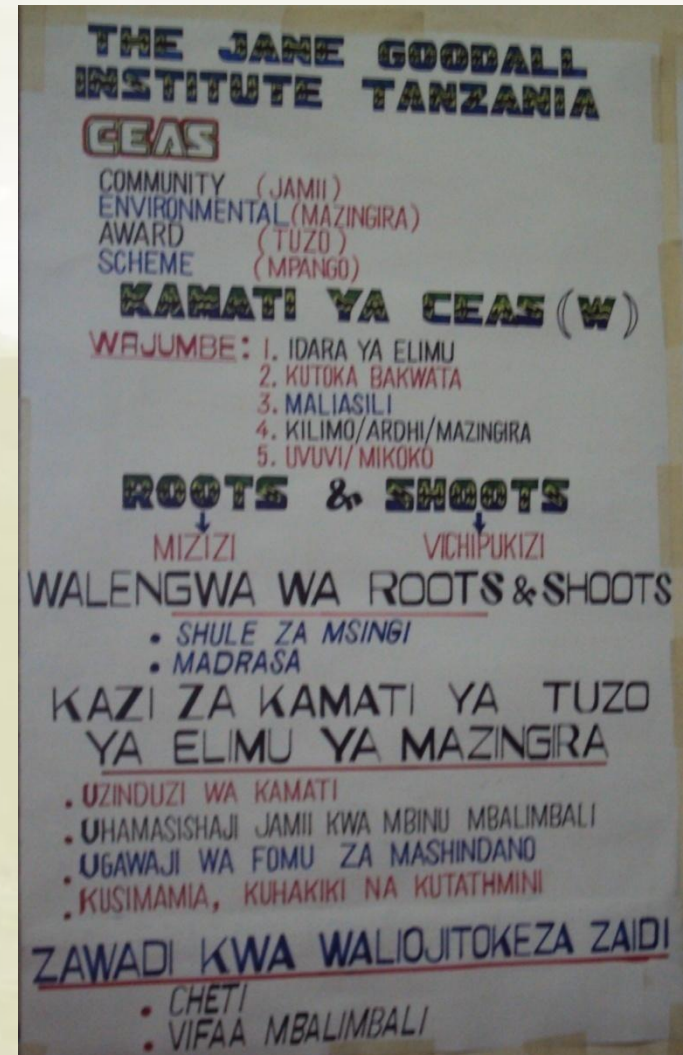 THE JANE GOODALL
INSTITUTE TANZANIA
CEAS
COMMUNITY (JAMII)
ENVIRONMENTAL (MAZINGIRA)
AWARD (TUZO)
SCHEME (MPANGO)
KAMATI YA CEAS (W)
WAJUMBE: 1. IDARA YA ELIMU
2. KUTOKA BAKWATA
3. MALIASILI
4. KILIMO/ARDHI/MAZINGIRA
5. UVUVI/MIKOKO
ROOTS & SHOOTS
MIZIZI VICHIPUKIZI
WALENGWA WA ROOTS & SHOOTS
• SHULE ZA MSINGI
• MADRASA
KAZI ZA KAMATI YA TUZO
YA ELIMU YA MAZINGIRA
• UZINDUZI WA KAMATI
• UHAMASISHAJI JAMII KWA MBINU MBALIMBALI
• UGAWAJI WA FOMU ZA MASHINDANO
• KUSIMAMIA, KUHAKIKI NA KUTATHMINI
ZAWADI KWA WALIOJITOKEZA ZAIDI
• CHETI
• VIFAA MBALIMBALI